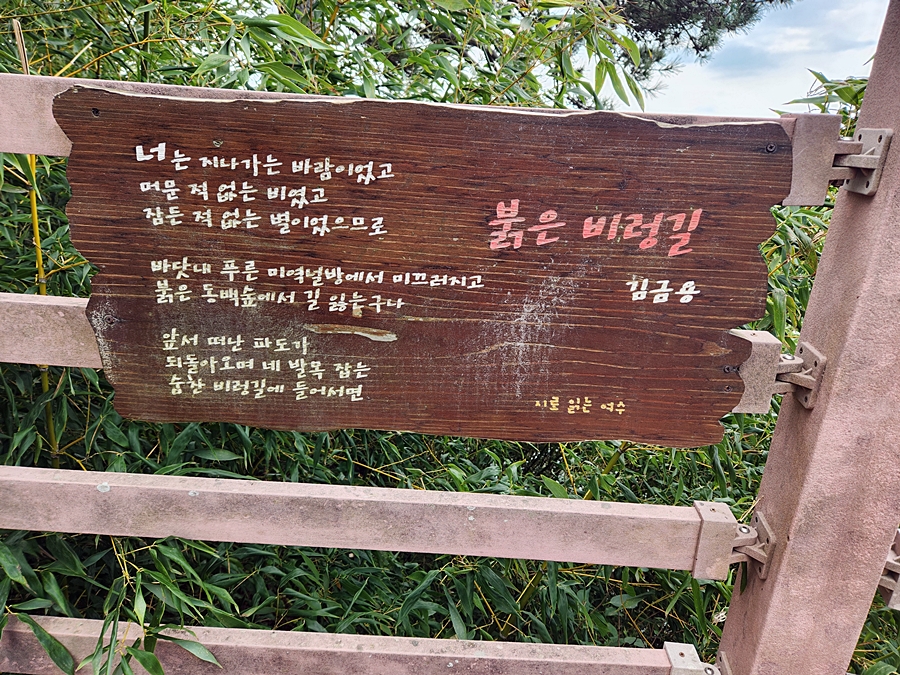 너는 지나가는 바람이었고
머문 적 없는 비였고
잠든 적 없는 별이었으므로
바닷내 푸른 미역널방에서 미끄러지고
붉은 동백숲에서 길 잃는구나
앞서 떠난 파도가
되돌아오며 네 발목 잡는
숨찬 비렁길에 들어서면
붉은 비렁길
김금용
시로 읽는 여수